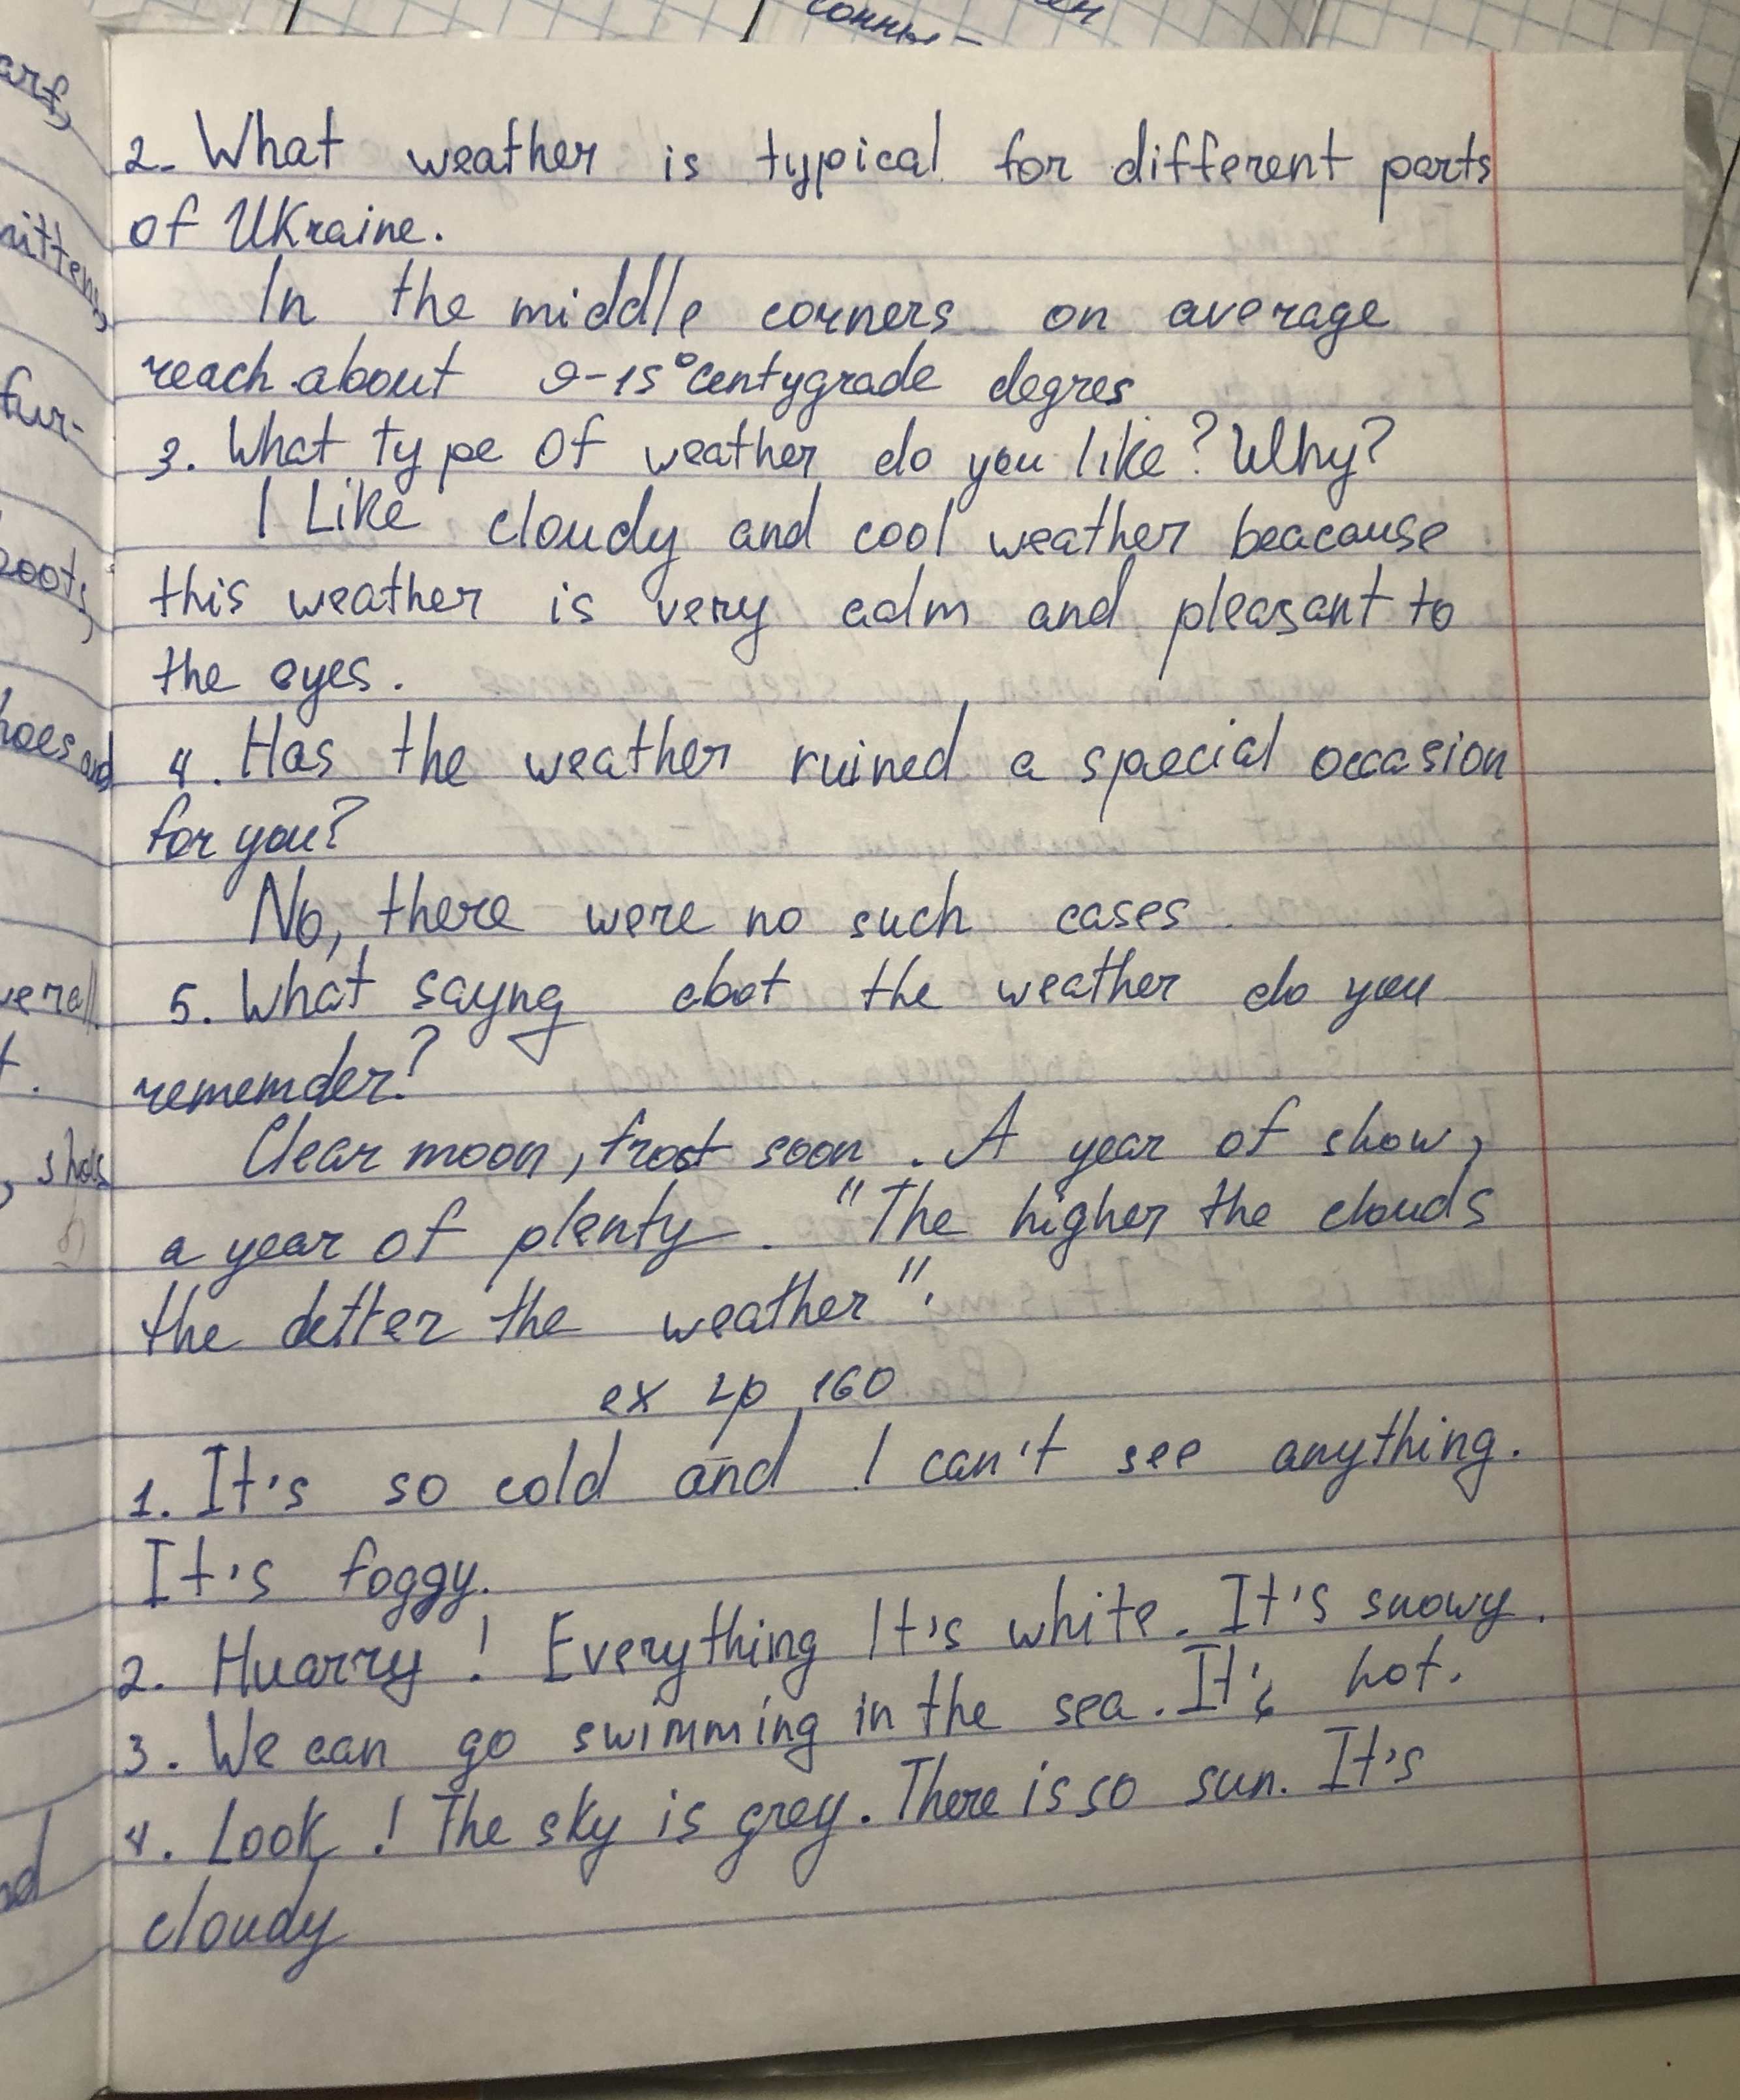 2. What weather is typical for different parts
of Ukraine.
In the middle corners on average
reach about 9-15° centygrade degres
3. What type of weather do you like? Why?
I Like cloudy and cool weather beacause
this weather is very calm and pleasant to
the eyes.
4. Has the weather ruined a special occasion
for you?
No, there were no such cases
5. What sayng abot the weather do you
rememder?
Clear moon, frost soon. A year of show,
a year of plenty. "The higher the clouds
the detter the weather".
ex 2p 160
1. It's so cold and I can't see anything.
It's foggy.
2. Huarry! Everything It's white. It's snowy.
3. We can go swimming in the sea. It's hot.
4. Look! The sky is grey. There is so sun. It's
cloudy